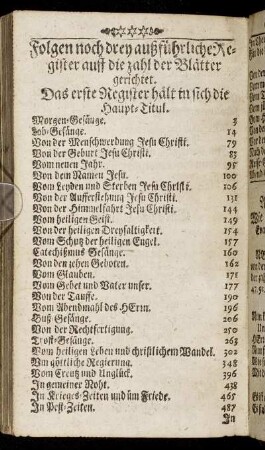 Folgen noch drey außführliche Re-
gister auff die zahl der Blätter
gerichtet.
Das erste Register hält in sich die
Haupt-Titul.
Morgen-Gesänge. 3
Lob-Gesänge. 14
Von der Menschwerdung Jesu Christi. 79
Von der Geburt Jesu Christi. 83
Vom neuen Jahr. 95
Von dem Namen Jesu. 100
Vom Leyden und Sterben Jesu Christi. 106
Von der Aufferstehung Jesu Christi. 131
Von der Himmelfahrt Jesu Christi. 144
Vom heiligen Geist. 149
Von der heiligen Dreyfaltigkeit. 154
Vom Schutz der heiligen Engel. 157
Catechißmus Gesänge. 160
Von den zehen Geboten. 162
Vom Glauben. 171
Vom Gebet und Vater unser. 177
Von der Tauffe. 190
Vom Abendmahl des HErrn. 196
Buß-Gesänge. 206
Von der Rechtfertigung. 250
Trost-Gesänge. 263
Vom heiligen Leben und christlichem Wandel. 302
Um göttliche Regierung. 348
Vom Creutz und Unglück. 396
In gemeiner Noht. 438
In Krieges-Zeiten und üm Friede. 465
In Pest-Zeiten. 487
In